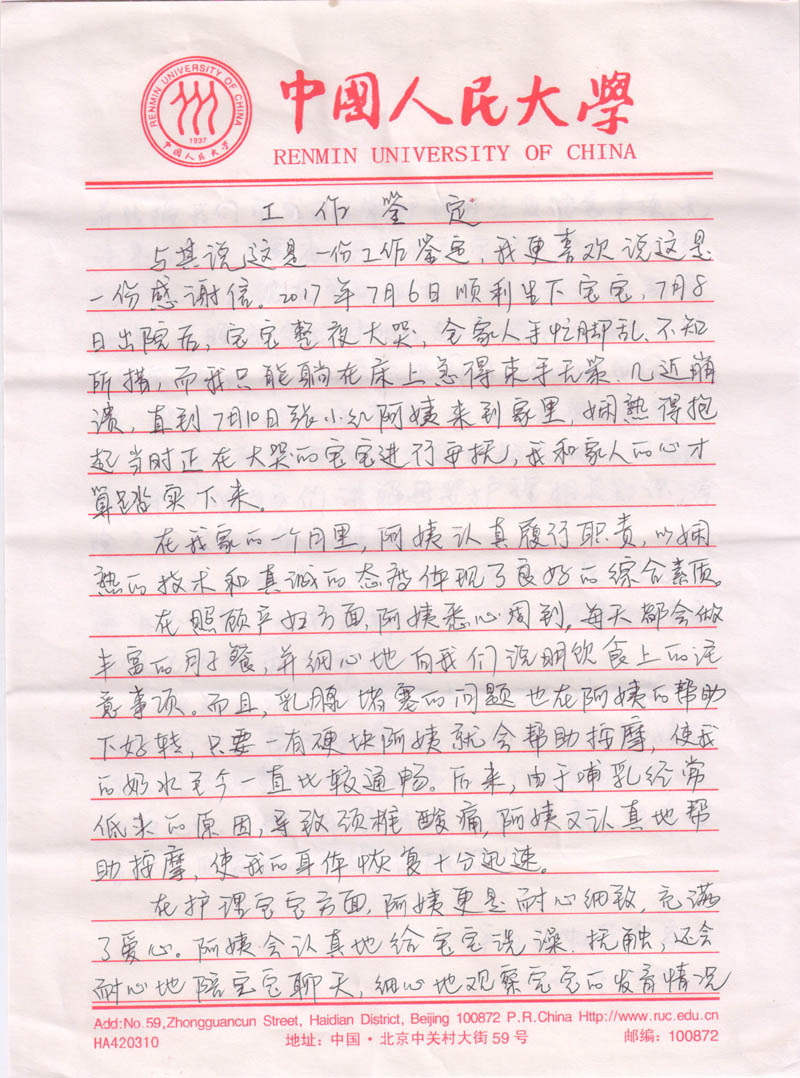 RENMIN UNIVERSITY OF CHINA
1937
中国人民大学
中國人民大學
RENMIN UNIVERSITY OF CHINA
工作鉴定
与其说这是一份工作鉴定,我更喜欢说这是
一份感谢信。2017年7月6日顺利生下宝宝,7月8
日出院后,宝宝整夜大哭,全家人手忙脚乱、不知
所措,而我只能躺在床上急得束手无策、几近崩
溃,直到7月10日张小红阿姨来到家里,娴熟得抱
起当时正在大哭的宝宝进行安抚,我和家人的心才
算踏实下来。
在我家的一个月里,阿姨认真履行职责,以娴
熟的技术和真诚的态度体现了良好的综合素质。
在照顾产妇方面,阿姨悉心周到,每天都会做
丰富的月子餐,并细心地向我们说明饮食上的注
意事项。而且,乳腺堵塞的问题也在阿姨的帮助
下好转,只要一有硬块阿姨就会帮助按摩,使我
的奶水至今一直比较通畅。后来,由于哺乳经常
低头的原因,导致颈椎酸痛,阿姨又认真地帮
助按摩,使我的身体恢复十分迅速。
在护理宝宝方面,阿姨更是耐心细致,充满
了爱心。阿姨会认真地给宝宝洗澡、抚触,还会
耐心地陪宝宝聊天,细心地观察宝宝的发育情况
Add:No.59,Zhongguancun Street, Haidian District, Beijing 100872 P.R.China Http://www.ruc.edu.cn
HA420310 地址:中国·北京中关村大街59号 邮编:100872